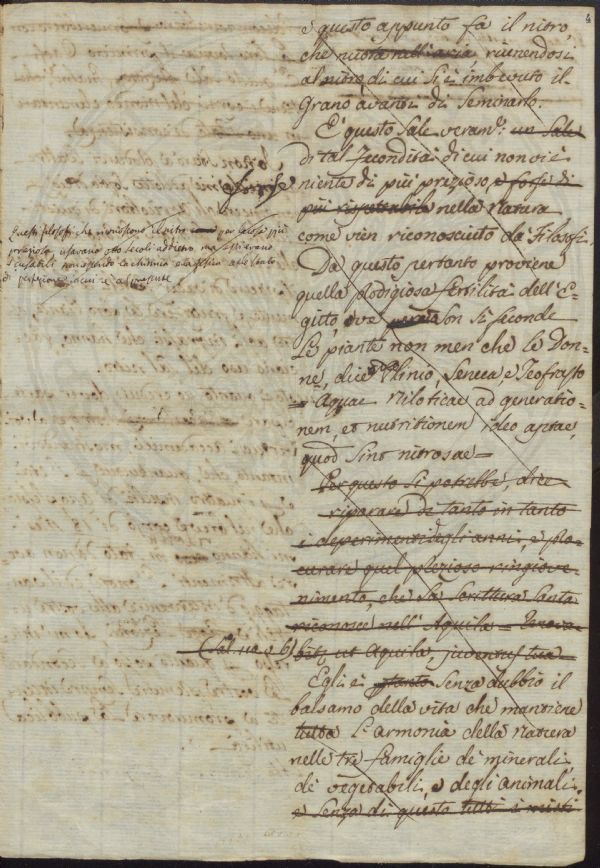 4
e questo appunto fa il nitro,
che nuota nell'aria riunendosi
al nitro di cui si è imbevuto il
Grano avanti di Seminarlo.
E' questo Sale veram.e un Sale
di tal fecondità di cui non vi è
niente di più prezioso, e forse di
più rispettabile nella Natura
come vien riconosciuto da Filosofi.
Questi filosofi che riconoscono il nitro per cosa più
preziosa, usavano otto secoli addietro, ma
scusabili non essendo la chimica e la fisica
di perfezione a cui è al presente
Da questo pertanto proviene
quella prodigiosa fertilità dell'E-
gitto, ove son sì feconde
le piante non men che le Don-
ne, dice Plinio, Seneca, e Teofrasto
= Aquae niloticae ad generatio-
nem, et nutritionem ideo aptae,
quod sint nitrosae =
Per questo si potrebbe, dice
riparare di tanto in tanto
i deperimenti degli anni, e pro-
curare quel prezioso ringiove-
nimento, che la Scrittura Santa
riconosce nell'Aquila = Renova-
bitz ut Aquila, juventus tua =
Egli è senza dubbio il
balsamo della vita che mantiene
tutta l'armonia della natura
nelle tre famiglie de' minerali,
de' vegetabili, e degli animali,
e senza di questo tutti i misti